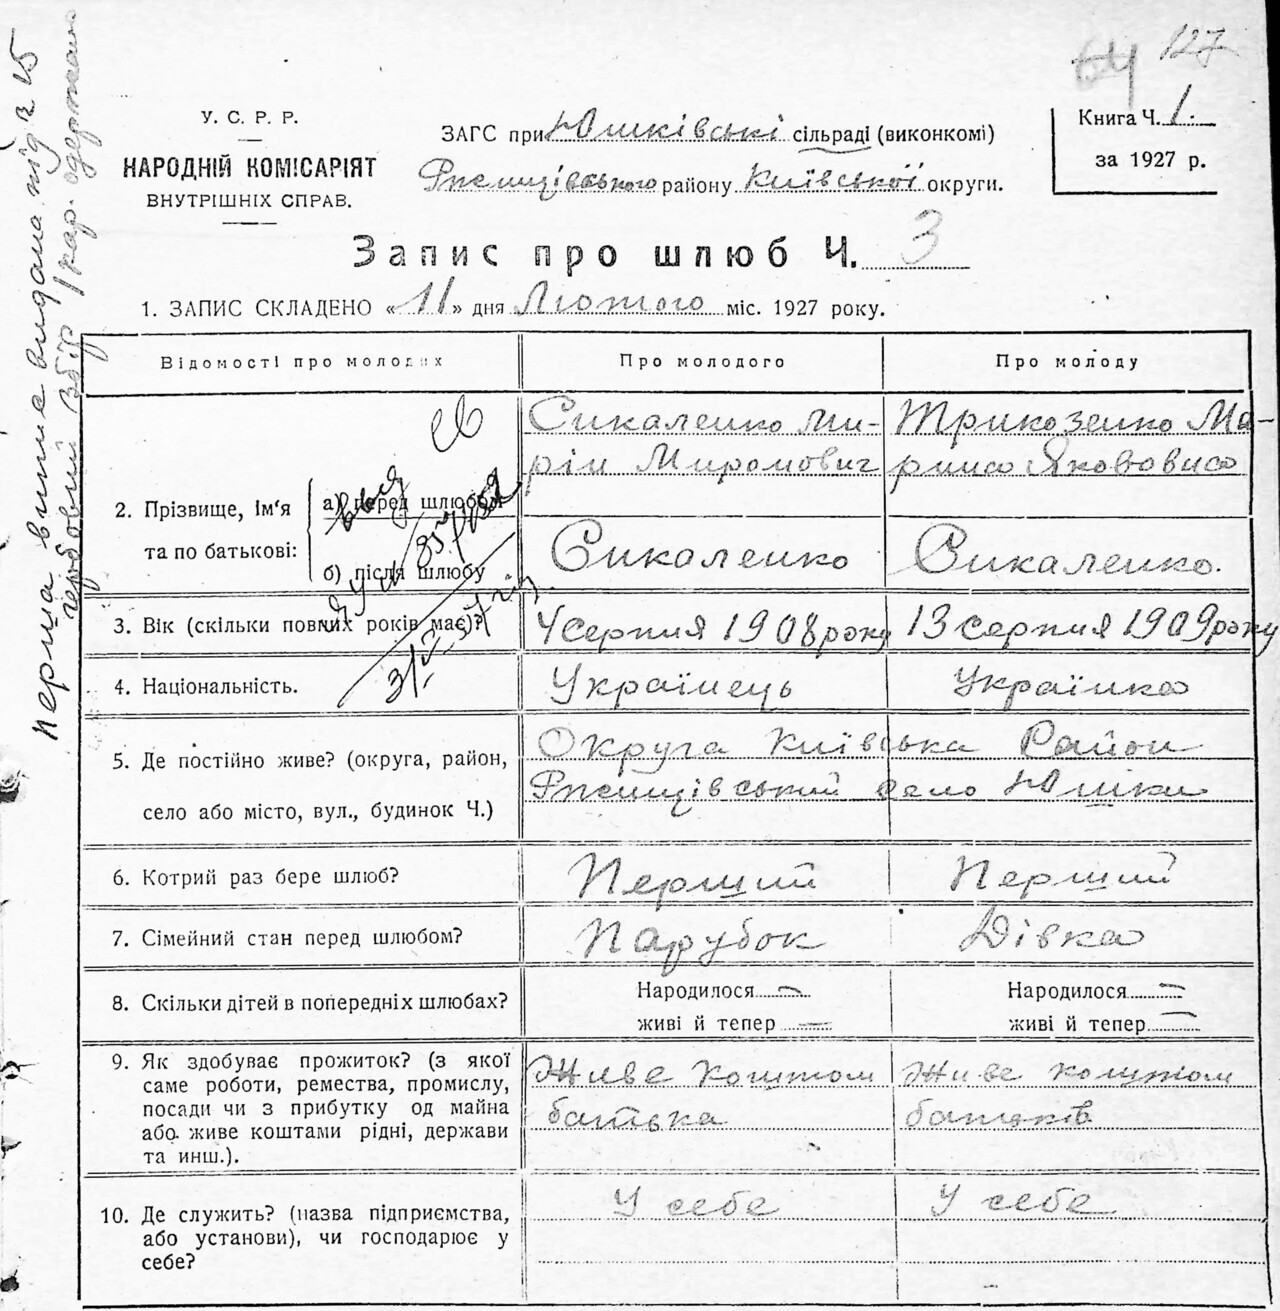 64 127
У. С. Р. Р.
НАРОДНІЙ КОМІСАРІЯТ
ВНУТРІШНІХ СПРАВ.
ЗАГС при Юшківські сільраді (виконкомі)
Ржищівського району Київської округи.
Книга Ч. 1.
за 1927 р.
Запис про шлюб Ч. 3
1. ЗАПИС СКЛАДЕНО «11» дня Лютого міс. 1927 року.
Перша випис видана під № 15
гербовий збір 1 кар. одержано
Відомості про молодих
Про молодого
Про молоду
2. Прізвище, ім'я
та по батькові:
а) перед шлюбом
б) після шлюбу
Сикаленко Ми-
рін Миронович
Трикозенко Ма-
рина Якововна
Сикаленко
Сикаленко.
3. Вік (скільки повних років має)?
4 серпня 1908 року
13 серпня 1909 року
4. Національність.
Українець
Українка
5. Де постійно живе? (округа, район,
село або місто, вул., будинок Ч.)
Округа Київська Район
Ржищівський село Юшки
6. Котрий раз бере шлюб?
Перший
Перший
7. Сімейний стан перед шлюбом?
Парубок
Дівка
8. Скільки дітей в попередніх шлюбах?
Народилося —
живі й тепер —
Народилося —
живі й тепер —
9. Як здобуває прожиток? (з якої
саме роботи, ремества, промислу,
посади чи з прибутку од майна
або живе коштами рідні, держави
та инш.).
Живе коштом
батька
Живе коштом
батьків
10. Де служить? (назва підприємства,
або установи), чи господарює у
себе?
У себе
У себе